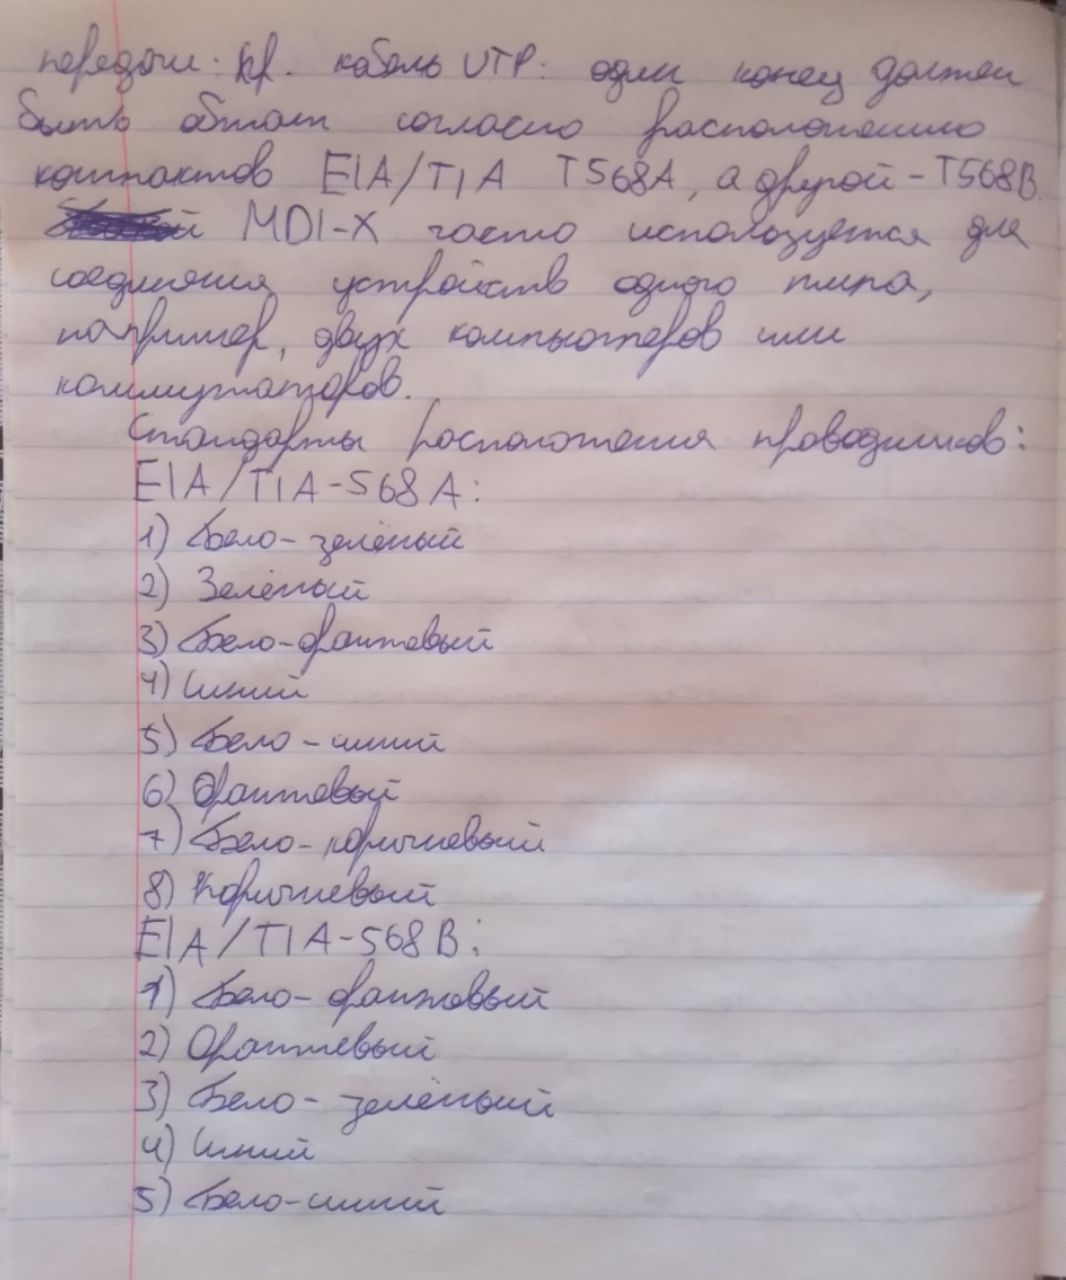 передачи. Кр. кабель UTP: один конец должен
быть обжат согласно расположению
контактов EIA/TIA T568A, а другой - T568B.
MDI-X часто используется для
соединения устройств одного типа,
например, двух компьютеров или
коммутаторов.
Стандарты расположения проводников:
EIA/TIA-568A:
1) Бело-зелёный
2) Зелёный
3) Бело-оранжевый
4) Синий
5) Бело-синий
6) Оранжевый
7) Бело-коричневый
8) Коричневый
EIA/TIA-568B:
1) Бело-оранжевый
2) Оранжевый
3) Бело-зелёный
4) Синий
5) Бело-синий